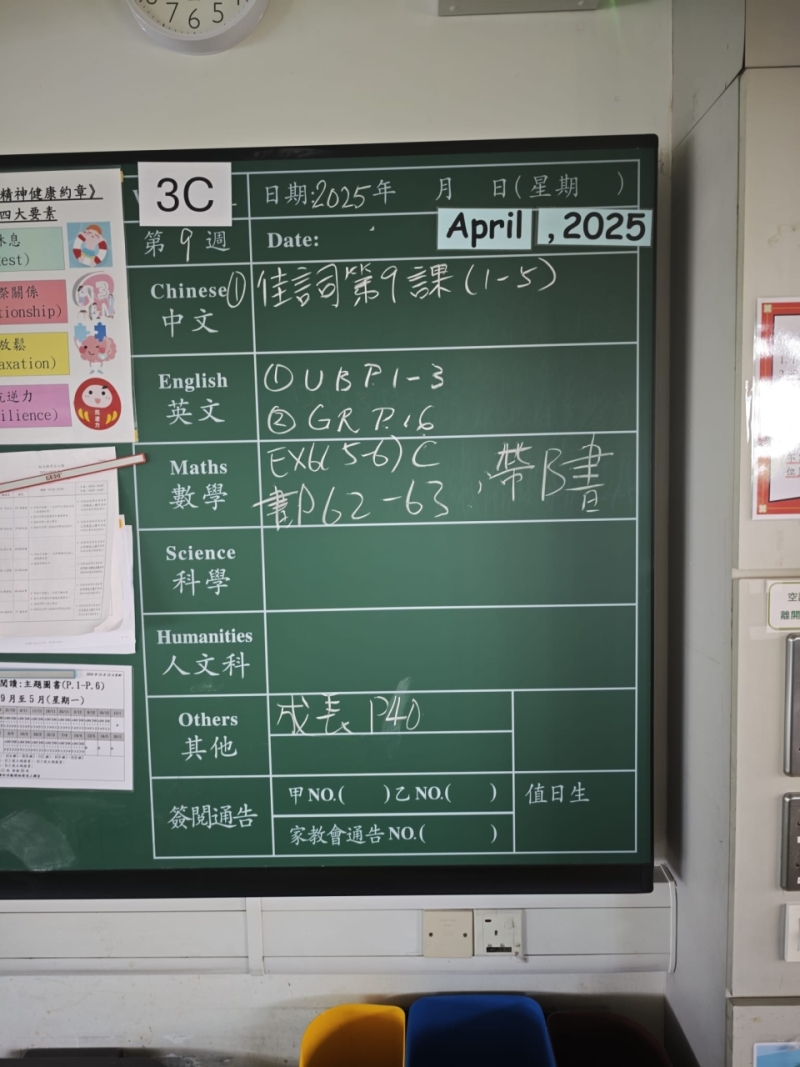 7 6 5
精神健康約章》
四大要素
休息
est)
際關係
tionship)
放鬆
axation)
抗逆力
ilience)
3C
日期:2025年 月 日(星期 )
第9週
Date:
April , 2025
Chinese
中文
① 佳詞第9課(1-5)
English
英文
① UB P.1-3
② GR P.16
Maths
數學
EX6(5-6)C
書P62-63
帶B書
Science
科學
Humanities
人文科
Others
其他
成長 P40
簽閱通告
甲NO.( )乙NO.( )
值日生
家教會通告NO.( )
閱讀:主題圖書(P.1-P.6)
9月至5月(星期一)
離開